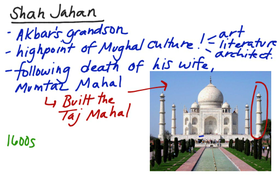 Shah Jahan
- Akbar's grandson
- highpoint of Mughal culture! - art
- literature
- architect.
- following death of his wife,
Mumtaz Mahal
↳ Built the
Taj Mahal
1600s